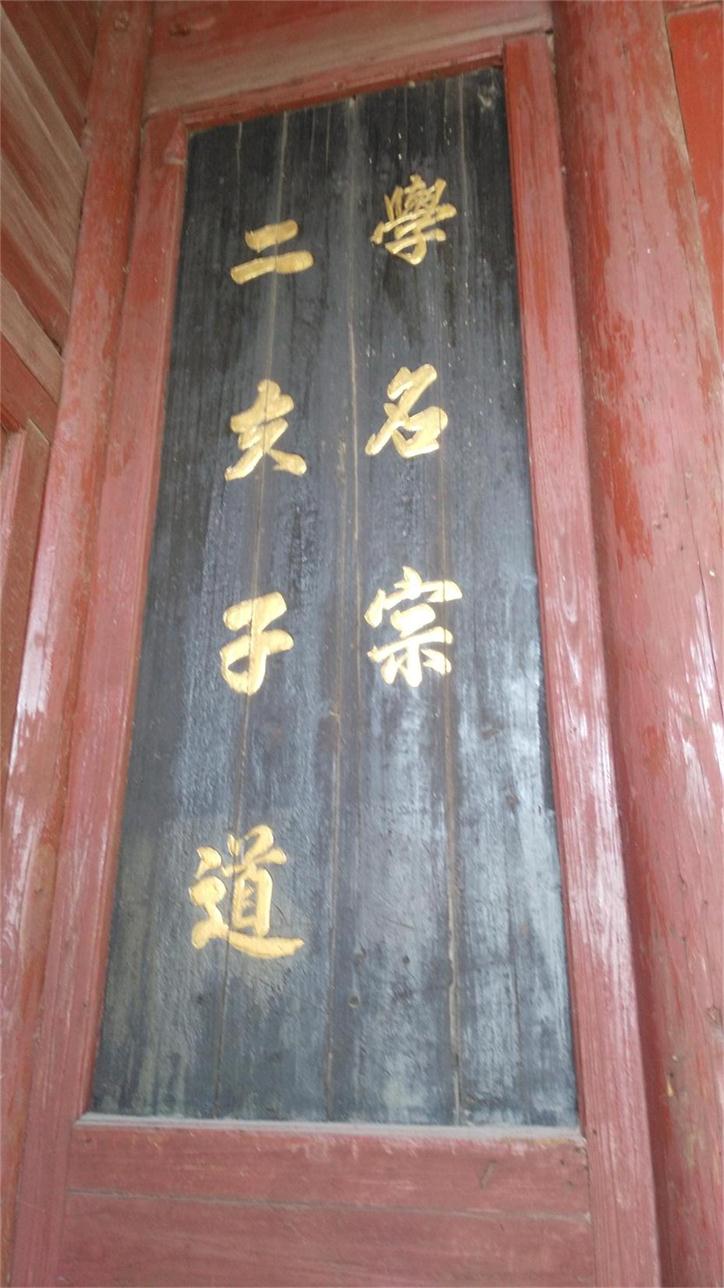 學名宗
二夫子道